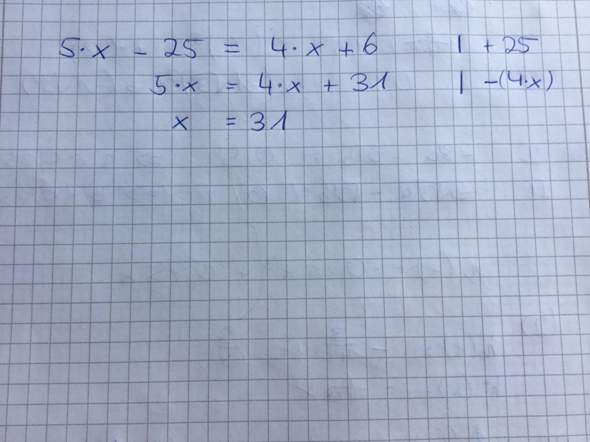 5·x - 25 = 4·x + 6 | + 25
5·x = 4·x + 31 | -(4·x)
x = 31